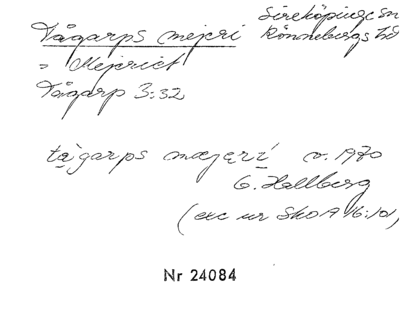 Tågarps mejeri
Sireköpinge sn
Rönnebergs hd
= Mejeriet
Tågarp 3:32
tågarps mæjęri 1970
G. Hallberg
(exc ur Skoa 16:101)
Nr 24084